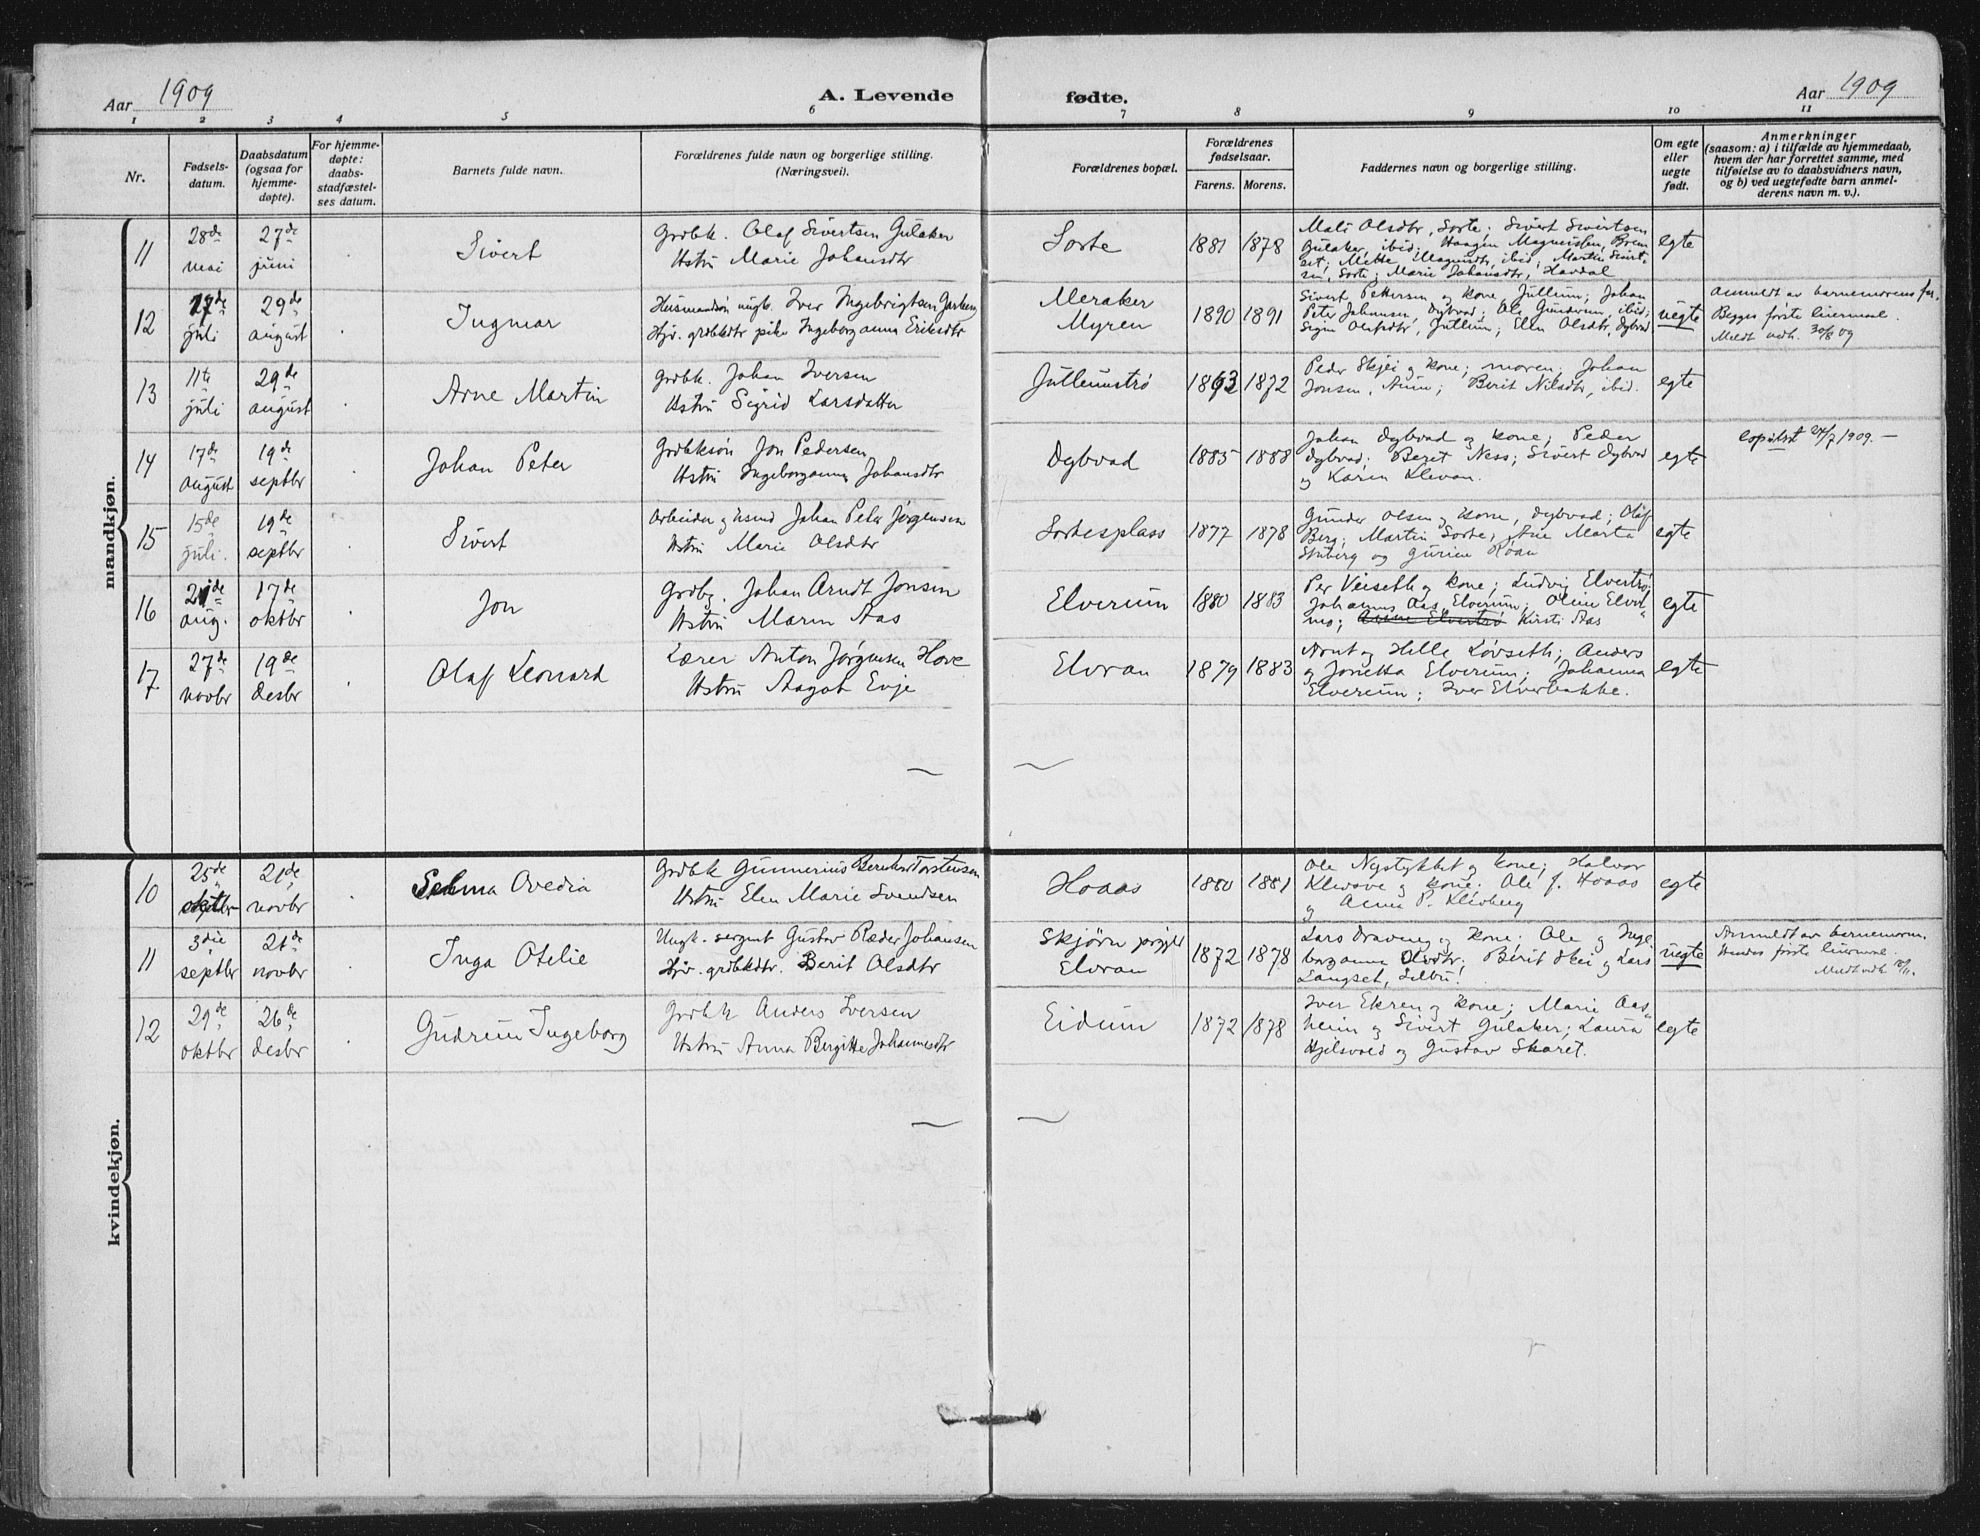 Aar 1909
A. Levende
fødte.
Aar 1909
1 2 3 4 5 6 7 8 9 10 11
Nr.
Fødsels-
datum.
Daabsdatum
(ogsaa for
hjemme-
døpte).
For hjemme-
døpte:
daabs-
stadfæstel-
ses datum.
Barnets fulde navn.
Forældrenes fulde navn og borgerlige stilling.
(Næringsvei).
Forældrenes bopæl.
Forældrenes
fødselsaar.
Farens. Morens.
Faddernes navn og borgerlige stilling.
Om egte
eller
uegte
født.
Anmerkninger
(saasom: a) i tilfælde av hjemmedaab,
hvem der har forrettet samme, med
tilføielse av to daabsvidners navn,
og b) ved uegtefødte barn anmel-
derens navn m. v.).
mandkjøn.
11
28de
mai
27de
juni
Sivert
Grdbk. Olaf Sivertsen Gulaker
Hstru Marie Johansdtr
Sorte
1881 1878
Mali Olsdtr, Sorte; Sivert Sivertsen
Gulaker, ibid; Haagen Magnussen, Brem
set; Mette Magnusdtr, ibid; Martin Sivert-
sen, Sorte; Marie Johansdtr, Havdal
egte
12
17de
juli
29de
august
Ingmar
Husmandsøn ungk. Iver Ingebrigtsen
Hjv. grdbkdtr pike Ingeborganna Eriksdtr
Meraker
Myren
1890 1891
Sivert Pettersen og kone, Jullum; Johan
Peter Johansen, Dybvad; Ole Gundersen, ibid;
Olafsdtr, Jullum; Elen Olsdtr, Dybvad
uegte
Anmeldt av barnemorens far.
Begges første leiermaal.
Meldt 30/8 09
13
11te
juli
29de
august
Arne Martin
Grdbk. Johan Iversen
Hstru Sigrid Larsdatter
Jullumstrø
1863 1872
Peder Skjei og kone; moren, Johan
Jonsen, Aune; Berit Nilsdtr, ibid.
egte
14
17de
august
19de
septbr
Johan Peter
Grdbksøn Jon Pedersen
Hstru Ingeborganna Johansdtr
Dybvad
1885 1888
Johan Dybvad og kone; Peder
Dybvad; Beret Ness; Sivert Dybvad
og Karen Kleven.
egte
copulert 24/7 1909. —
15
15de
juli.
19de
septbr
Sivert
Arbeider og husmd Johan Peter Jørgensen
Hstru Marie Olsdtr
Sortesplass
1877 1878
Gunder Olsen og kone, Dybvad; Olaf
Berg; Martin Sorte; Ane Marta
Stuberg og Gurine Roan
egte
16
21de
aug.
17de
oktbr
Jon
Grdbg. Johan Arndt Jonsen
Hstru Maren Aas
Elverum
1880 1883
Per Veiseth og kone; Ludvig Elvertrø;
Johannes Aas, Elverum; Oline Elver-
mo; Kirsti Aas
egte
17
27de
novbr
19de
desbr
Olaf Leonard
Lærer Anton Jørgensen Hove
Hstru Aagot Evje
Elvran
1879 1883
Arnt og Helle Løvseth; Anders
og Jonetta Elverum; Johanna
Elverum; Iver Elverbakke.
egte
kvindekjøn.
10
25de
oktbr
21de
novbr
Selma Ovedia
Grdbk Gunnerius Berehrt Torstensen
Hstru Elen Marie Svendsen
Hoaas
1880 1881
Ole Nystykket og kone; Halvor
Klevsve og kone; Ole J. Hoaas
og Anne P. Klevberg
egte
11
3die
septbr
21de
novbr
Inga Otelie
Ungk. sergnt Gustav Ræder Johansen
Hjv. grdbkdtr. Berit Olsdtr
Skjørn prgjld
Elvran
1872 1878
Lars Draveng og kone; Ole og Inge
borganna Olsdtr; Berit Skei og Lars
Langset, Selbu!
uegte
Anmeldt av barnemoren.
Hendes første leiermaal.
12
29de
oktbr
26de
desbr
Gudrun Ingeborg
Grdbk Anders Iversen
Hstru Anna Bergitte Johannesdtr
Eidum
1872 1878
Iver Ekren og kone; Marie Aas-
heim og Sivert Gulaker; Laura
Hjelsvold og Gustav Skaret.
egte